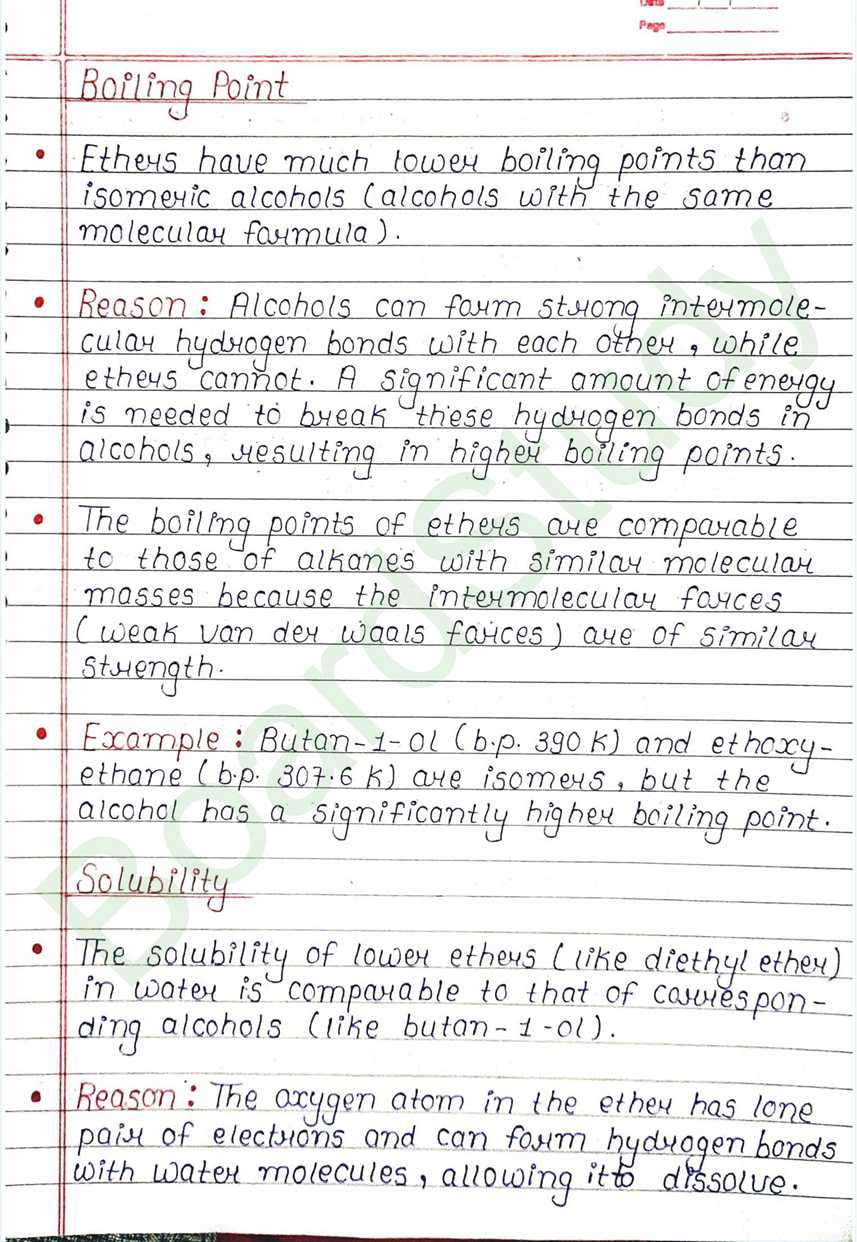 Date
Page
Boiling Point
• Ethers have much lower boiling points than
isomeric alcohols (alcohols with the same
molecular formula).
• Reason : Alcohols can form strong intermole-
cular hydrogen bonds with each other, while
ethers cannot. A significant amount of energy
is needed to break these hydrogen bonds in
alcohols, resulting in higher boiling points.
• The boiling points of ethers are comparable
to those of alkanes with similar molecular
masses because the intermolecular forces
(weak van der waals forces) are of similar
strength.
• Example : Butan-1-ol (b.p. 390 K) and ethoxy-
ethane (b.p. 307.6 K) are isomers, but the
alcohol has a significantly higher boiling point.
Solubility
• The solubility of lower ethers (like diethyl ether)
in water is comparable to that of correspon-
ding alcohols (like butan-1-ol).
• Reason : The oxygen atom in the ether has lone
pair of electrons and can form hydrogen bonds
with water molecules, allowing it to dissolve.
BoardStudy